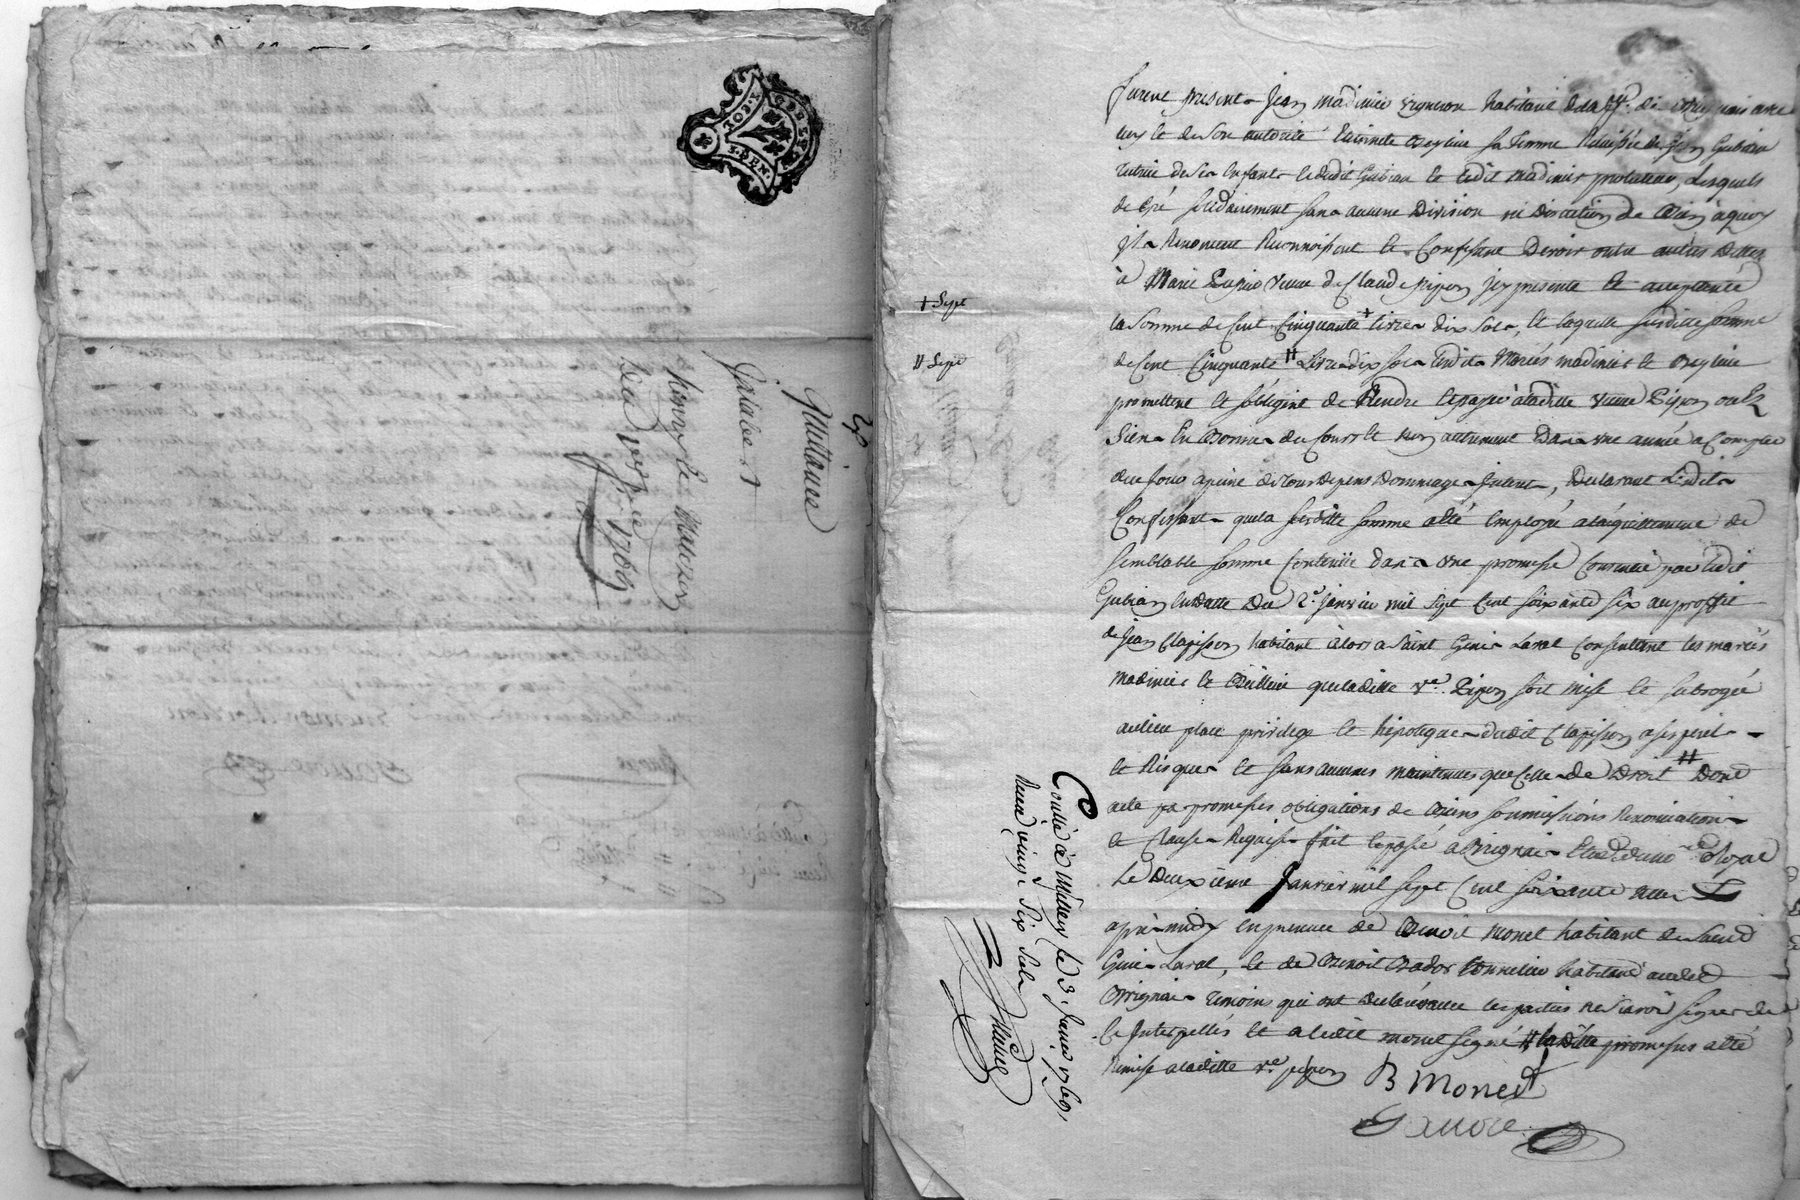 GENERALITE
LYON
1.DEN.
Quittance
Gilibert
henry le mauron
Du 1769
furent presents Jean madinier vigneron habitant de la pss. de Brignais avec
luy et de son autorité Etiennete Reylieu sa femme Relaissée de Jean Gubian
tutrice de ses Enfants et dudit Gubian et ledit madinier protuteur, Lesquels
de gré solidairement sans aucune Division ni Discution de Biens a quoy
ils Renoncent Reconnoissent et Confessent Devoir outre autres Dettes
à Marie veuve de Claude pipon icy presente et acceptante
+ Sept
la Somme de Cent Cinquante + livres dix sols, et laquelle susditte somme
# Sept
de Cent Cinquante # Livres dix sols lesdits Mariés madinier et Reylieu
promettent et s'obligent de Rendre et payer a laditte veuve Pipon ou Es
Siens En Bonnes du Cours et non autrement Dans une année a Compter
de ce jour a peine de tous Depens Dommages Interets, Declarant Lesdits
Confessants que la susditte somme a été Employée a l'acquittement de
semblable somme Contenüe dans une promesse Consentie par ledit
Gubian En datte du 2e janvier mil Sept Cent soixante six au proffit
de Jean Clapisson habitant alors a Saint Genis Laval Consentent les mariés
madinier et que laditte ve. Pipon soit mise et subrogée
au lieu place privilege et hipoteque dudit Clapisson a ses perils
et Risques et sans autres maintenues que celle de Droit # Dont
acte par promesses obligations de Biens soumissions Renonciations
et Clauses Requises fait et passé a Brignais Etude du no.re Royal
Le Deuxieme Janvier mil sept Cent soixante neuf
après midy En presence de Benoit Monet habitant de Saint
Genis Laval, et de Benoit Tonnelier habitant audit
Brignais temoins qui ont les parties ne Scavoir signer de
ce Interpellés et a ledit monet signé # laditte promesse a été
Remise a laditte ve. pipon
B Monet
Controllé à Millery le 3. Janvier 1769,
Reçu vingt Six Sols